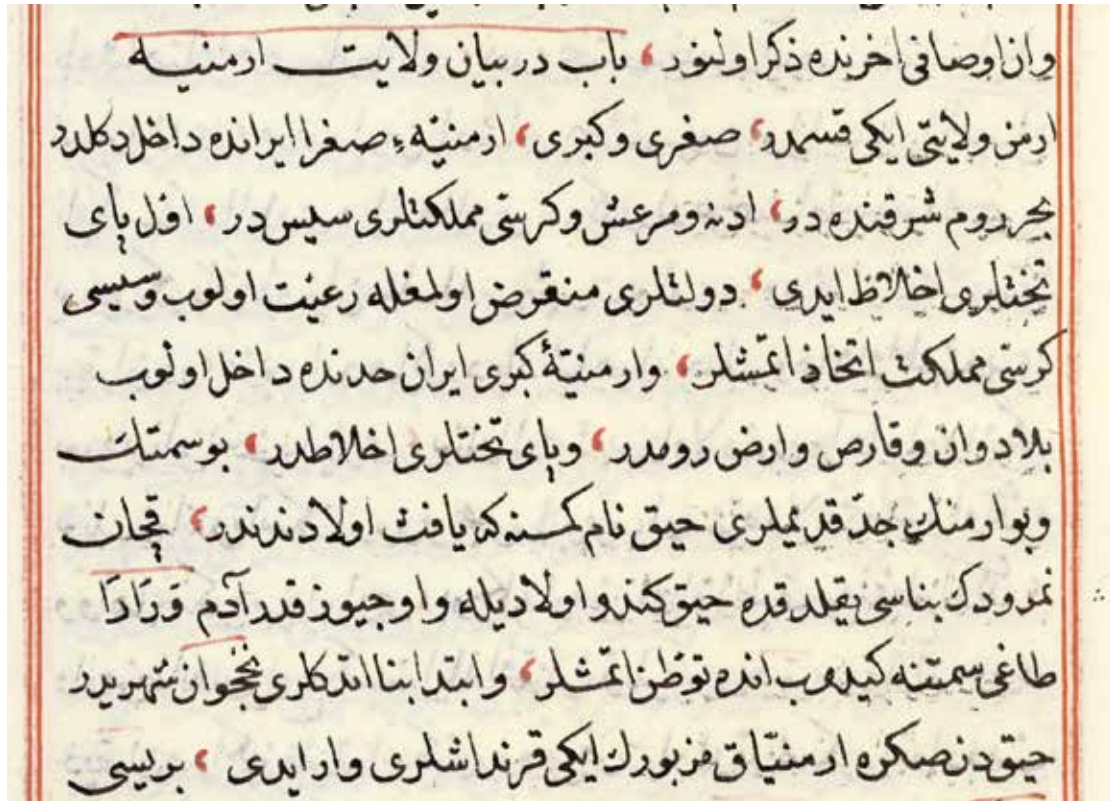 وان اوصافی اخرنده ذکر اولنور ، باب در بیان ولایت ارمنیه
ارمن ولایتی ایکی قسمدر ، صغری و کبری ، ارمنیهٔ صغرا ایرانده داخل دکلدر
بحر روم شرقنده در ، ادنه و مرعش و کرسی مملکتلری سیس در ، اول پای
تختلری اخلاط ایدی ، دولتلری منقرض اولمغله رعیت اولوب و سیسی
کرسی مملکت اتخاذ اتمشلر ، و ارمنیهٔ کبری ایران حدنده داخل اولوب
بلاد وان و قارص و ارض رومدر ، و پای تختلری اخلاطدر ، بو سمتك
و بو ارمنك جد قدیملری حیق نام کمسنه که یافث اولادندندر ، قچان
نمرودك بناسی یقلدقده حیق کندو اولادیله و اوچیوز قدر آدم وَرَادَا
طاغی سمتنه کیدوب انده توطن اتمشلر ، و ابتدا بنا اتدکلری نخجوان شهریدر
حیق دن صکره ارمنیاق مزبورك ایکی قرنداشلری وار ایدی ، بریسی